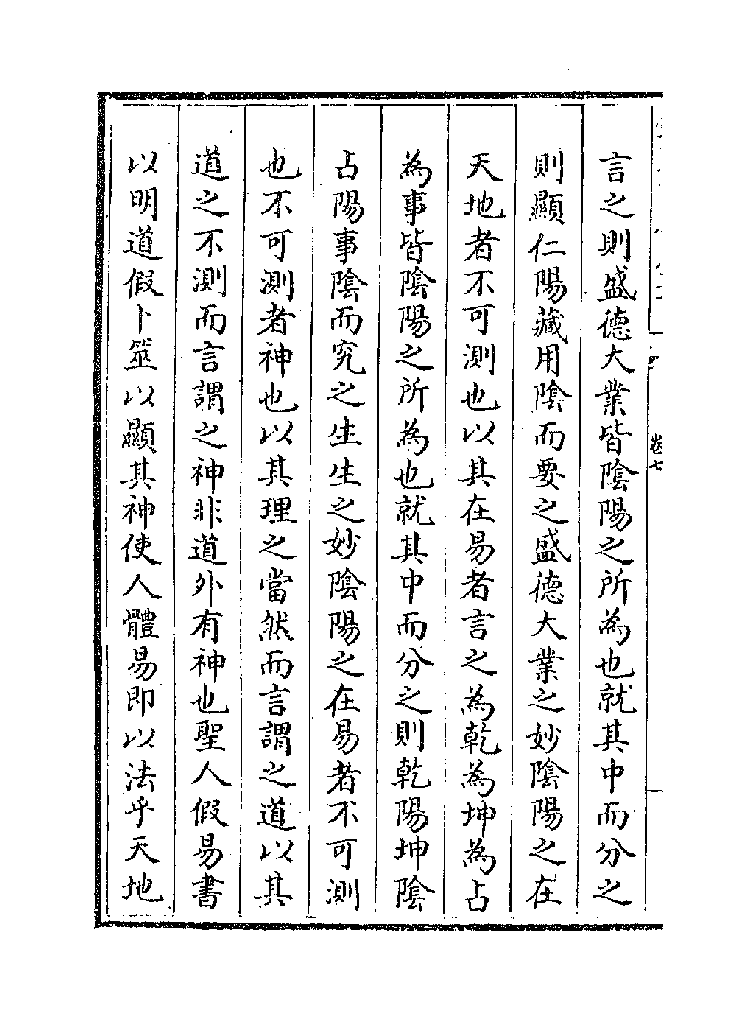 言之則盛德大業皆陰陽之所為也就其中而分之
則顯仁陽藏用陰而要之盛德大業之妙陰陽之在
天地者不可測也以其在易者言之為乾為坤為占
為事皆陰陽之所為也就其中而分之則乾陽坤陰
占陽事陰而究之生生之妙陰陽之在易者不可測
也不可測者神也以其理之當然而言謂之道以其
道之不測而言謂之神非道外有神也聖人假易書
以明道假卜筮以顯其神使人體易即以法乎天地
卷七